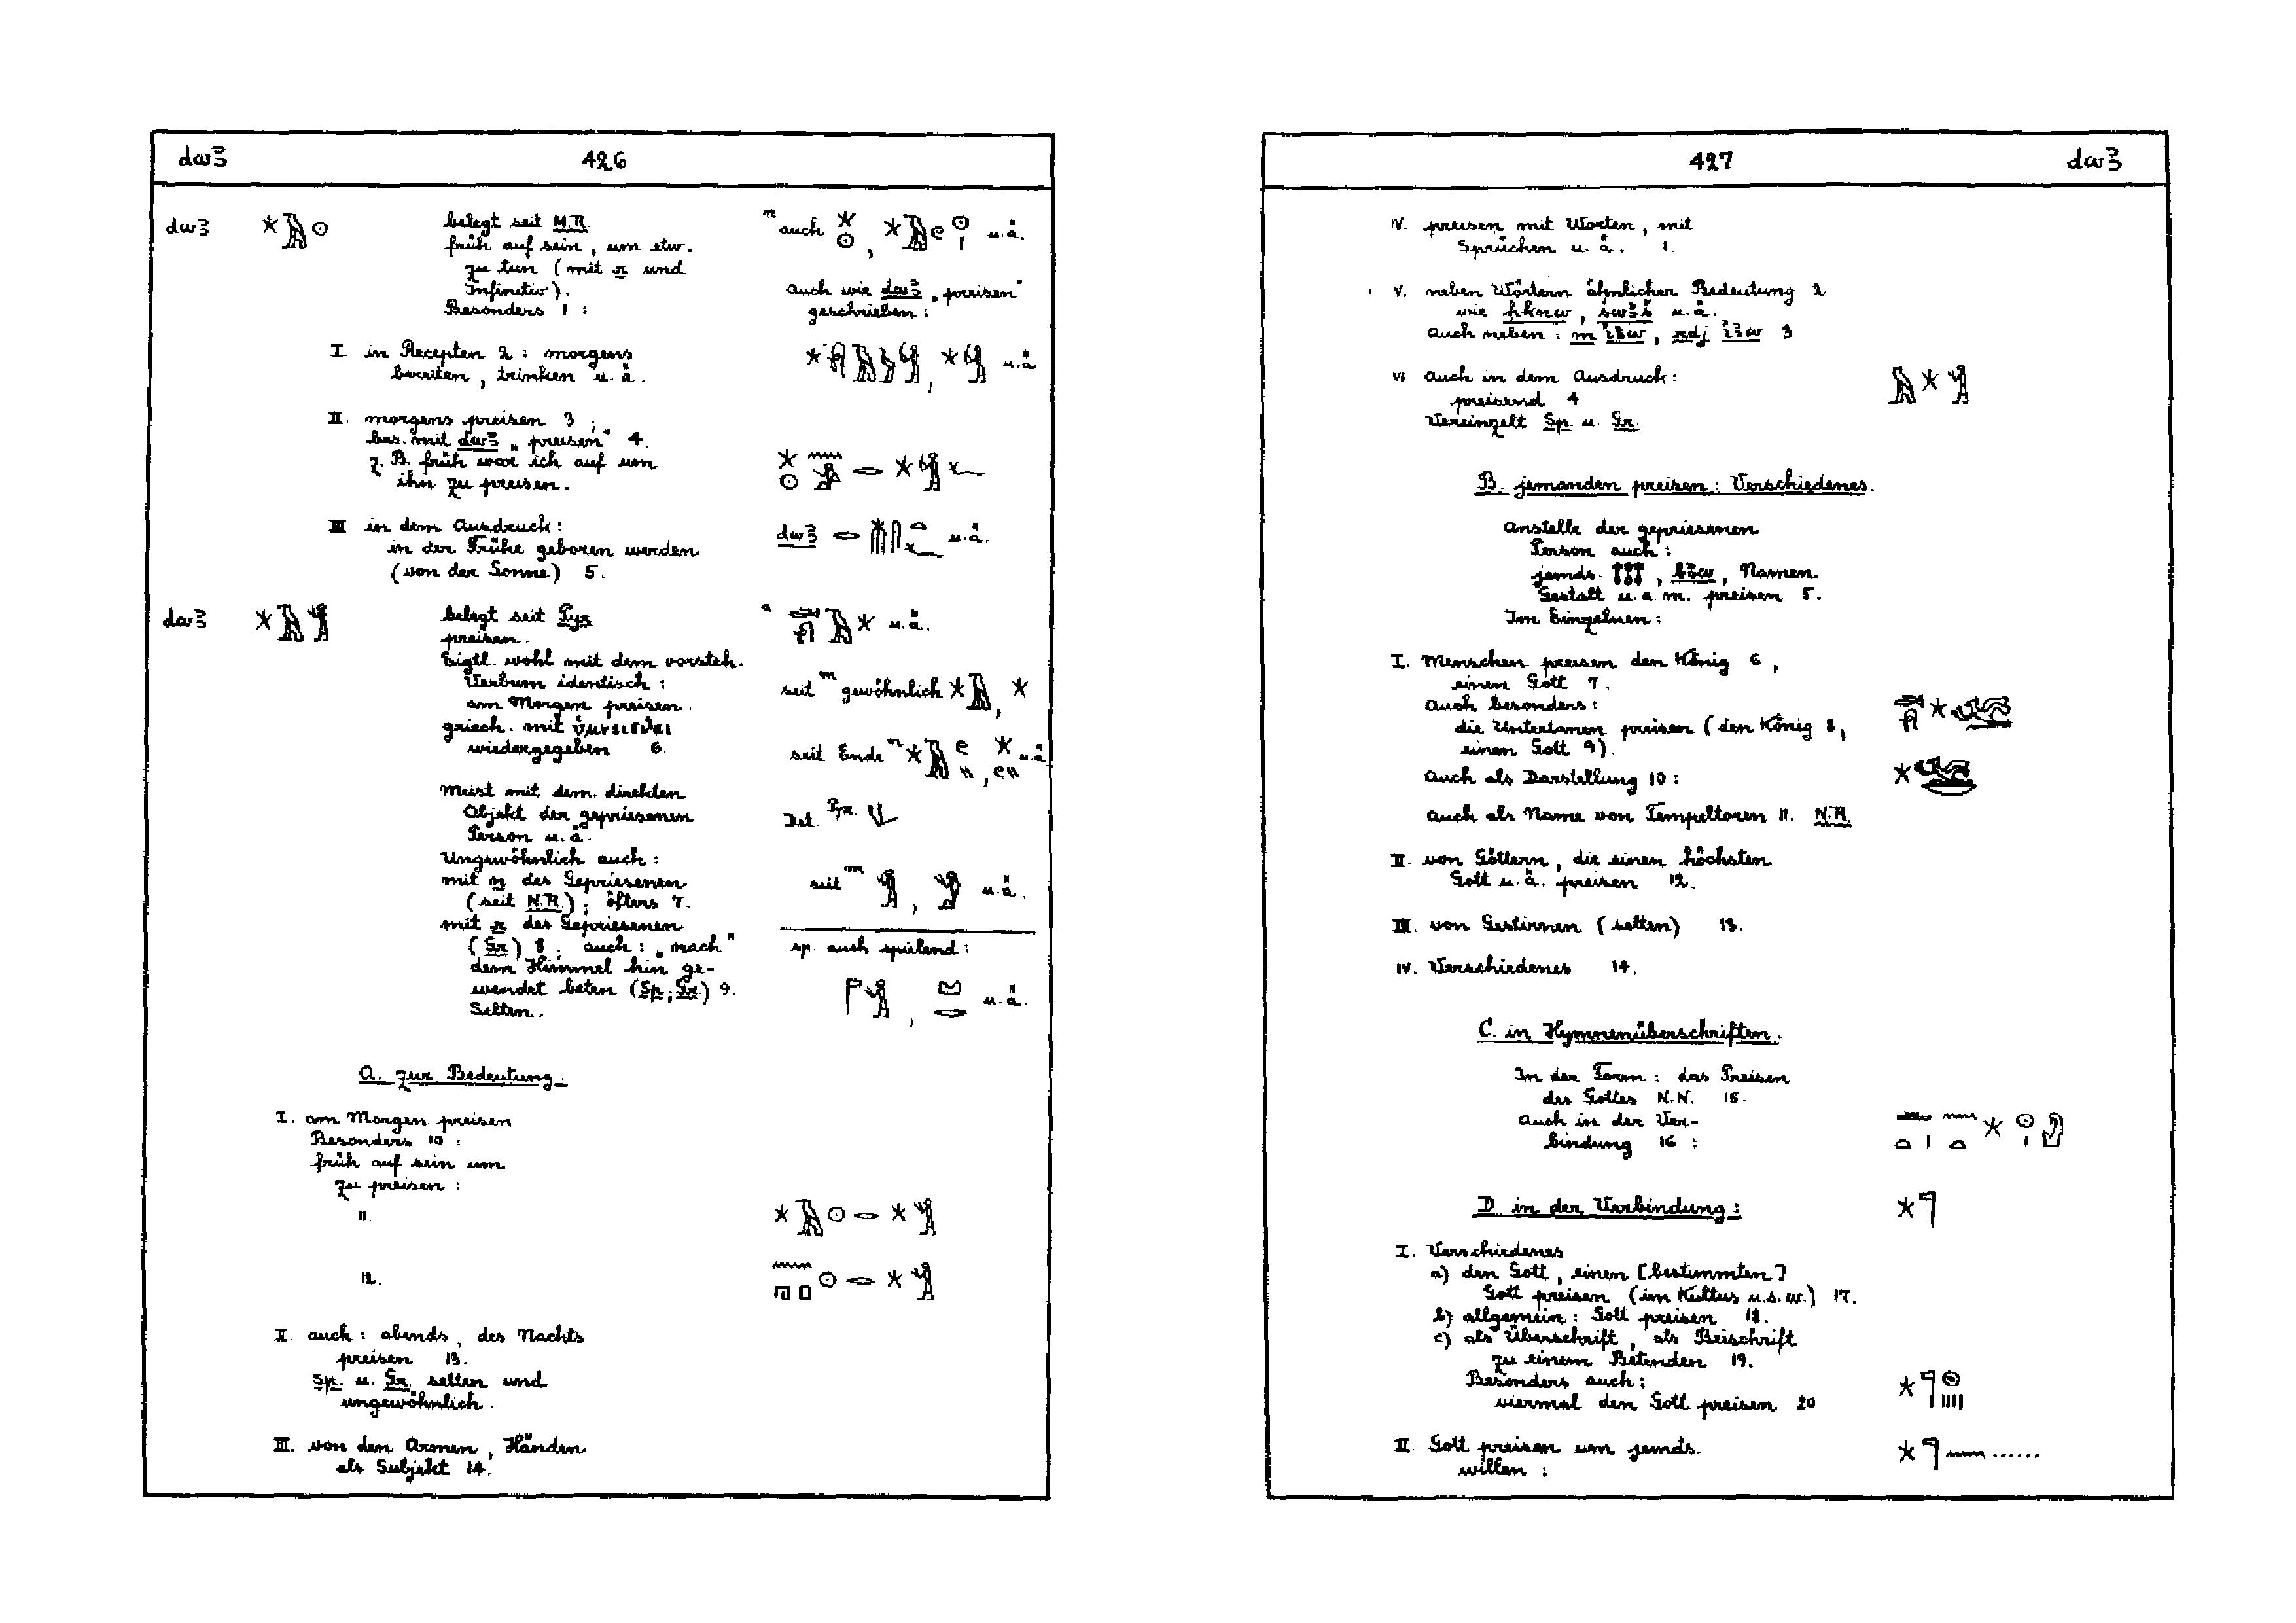 dwꜣ 426
dwꜣ 𓇼𓄿𓇳 belegt seit M.R.
früh auf sein, um etw.
zu tun (mit r und
Infinitiv).
Besonders 1 :
m auch u.ä.
auch wie dwꜣ „preisen"
geschrieben :
u.ä.
I in Recepten 2 : morgens
bereiten, trinken u.ä.
II. morgens preisen 3 ;
bes. mit dwꜣ „preisen" 4.
z.B. früh war ich auf um
ihn zu preisen.
III in dem Ausdruck :
in der Frühe geboren werden
(von der Sonne) 5.
dwꜣ u.ä.
dwꜣ belegt seit Pyr
preisen.
Eigtl. wohl mit dem vorsteh.
Verbum identisch :
am Morgen preisen.
griech. mit
wiedergegeben 6.
Meist mit dem direkten
Objekt der gepriesenen
Person u.ä.
Ungewöhnlich auch :
mit n des Gepriesenen
(seit N.R.) ; öfters 7.
mit r des Gepriesenen
(Gr) 8 ; auch : „nach"
dem Himmel hin ge-
wendet beten (Sp; Gr) 9.
Selten.
a u.ä.
seit m gewöhnlich
seit Ende n u.ä.
Det. Pyr.
seit m u.ä.
sp. auch spielend :
u.ä.
A. zur Bedeutung.
I. am Morgen preisen
Besonders 10 :
früh auf sein um
zu preisen :
11.
12.
II. auch : abends, des Nachts
preisen 13.
Sp. u. Gr. selten und
ungewöhnlich.
III. von den Armen, Händen
als Subjekt 14.
427 dwꜣ
IV. preisen mit Worten, mit
Sprüchen u.ä. 1.
V. neben Wörtern ähnlicher Bedeutung 2
wie ḥknw, swꜣš u.ä.
auch neben : m iꜣw, rdj iꜣw 3
VI auch in dem Ausdruck :
preisend 4
Vereinzelt Sp. u. Gr.
B. jemanden preisen : Verschiedenes.
Anstelle der gepriesenen
Person auch :
jemds. , bꜣw, Namen
Gestalt u.a.m. preisen 5.
Im Einzelnen :
I. Menschen preisen den König 6,
einen Gott 7.
Auch besonders :
die Untertanen preisen (den König 8,
einen Gott 9).
Auch als Darstellung 10 :
Auch als Name von Tempeltoren 11. N.R.
II. von Göttern, die einen höchsten
Gott u.ä. preisen 12.
III. von Gestirnen (selten) 13.
IV. Verschiedenes 14.
C. in Hymnenüberschriften.
In der Form : das Preisen
des Gottes N.N. 15.
Auch in der Ver-
bindung 16 :
D in der Verbindung :
I. Verschiedenes
a) den Gott, einen [bestimmten]
Gott preisen (im Kultus u.s.w.) 17.
b) allgemein : Gott preisen 18.
c) als Überschrift, als Beischrift
zu einem Betenden 19.
Besonders auch :
viermal den Gott preisen 20
II. Gott preisen um jemds.
willen :
......